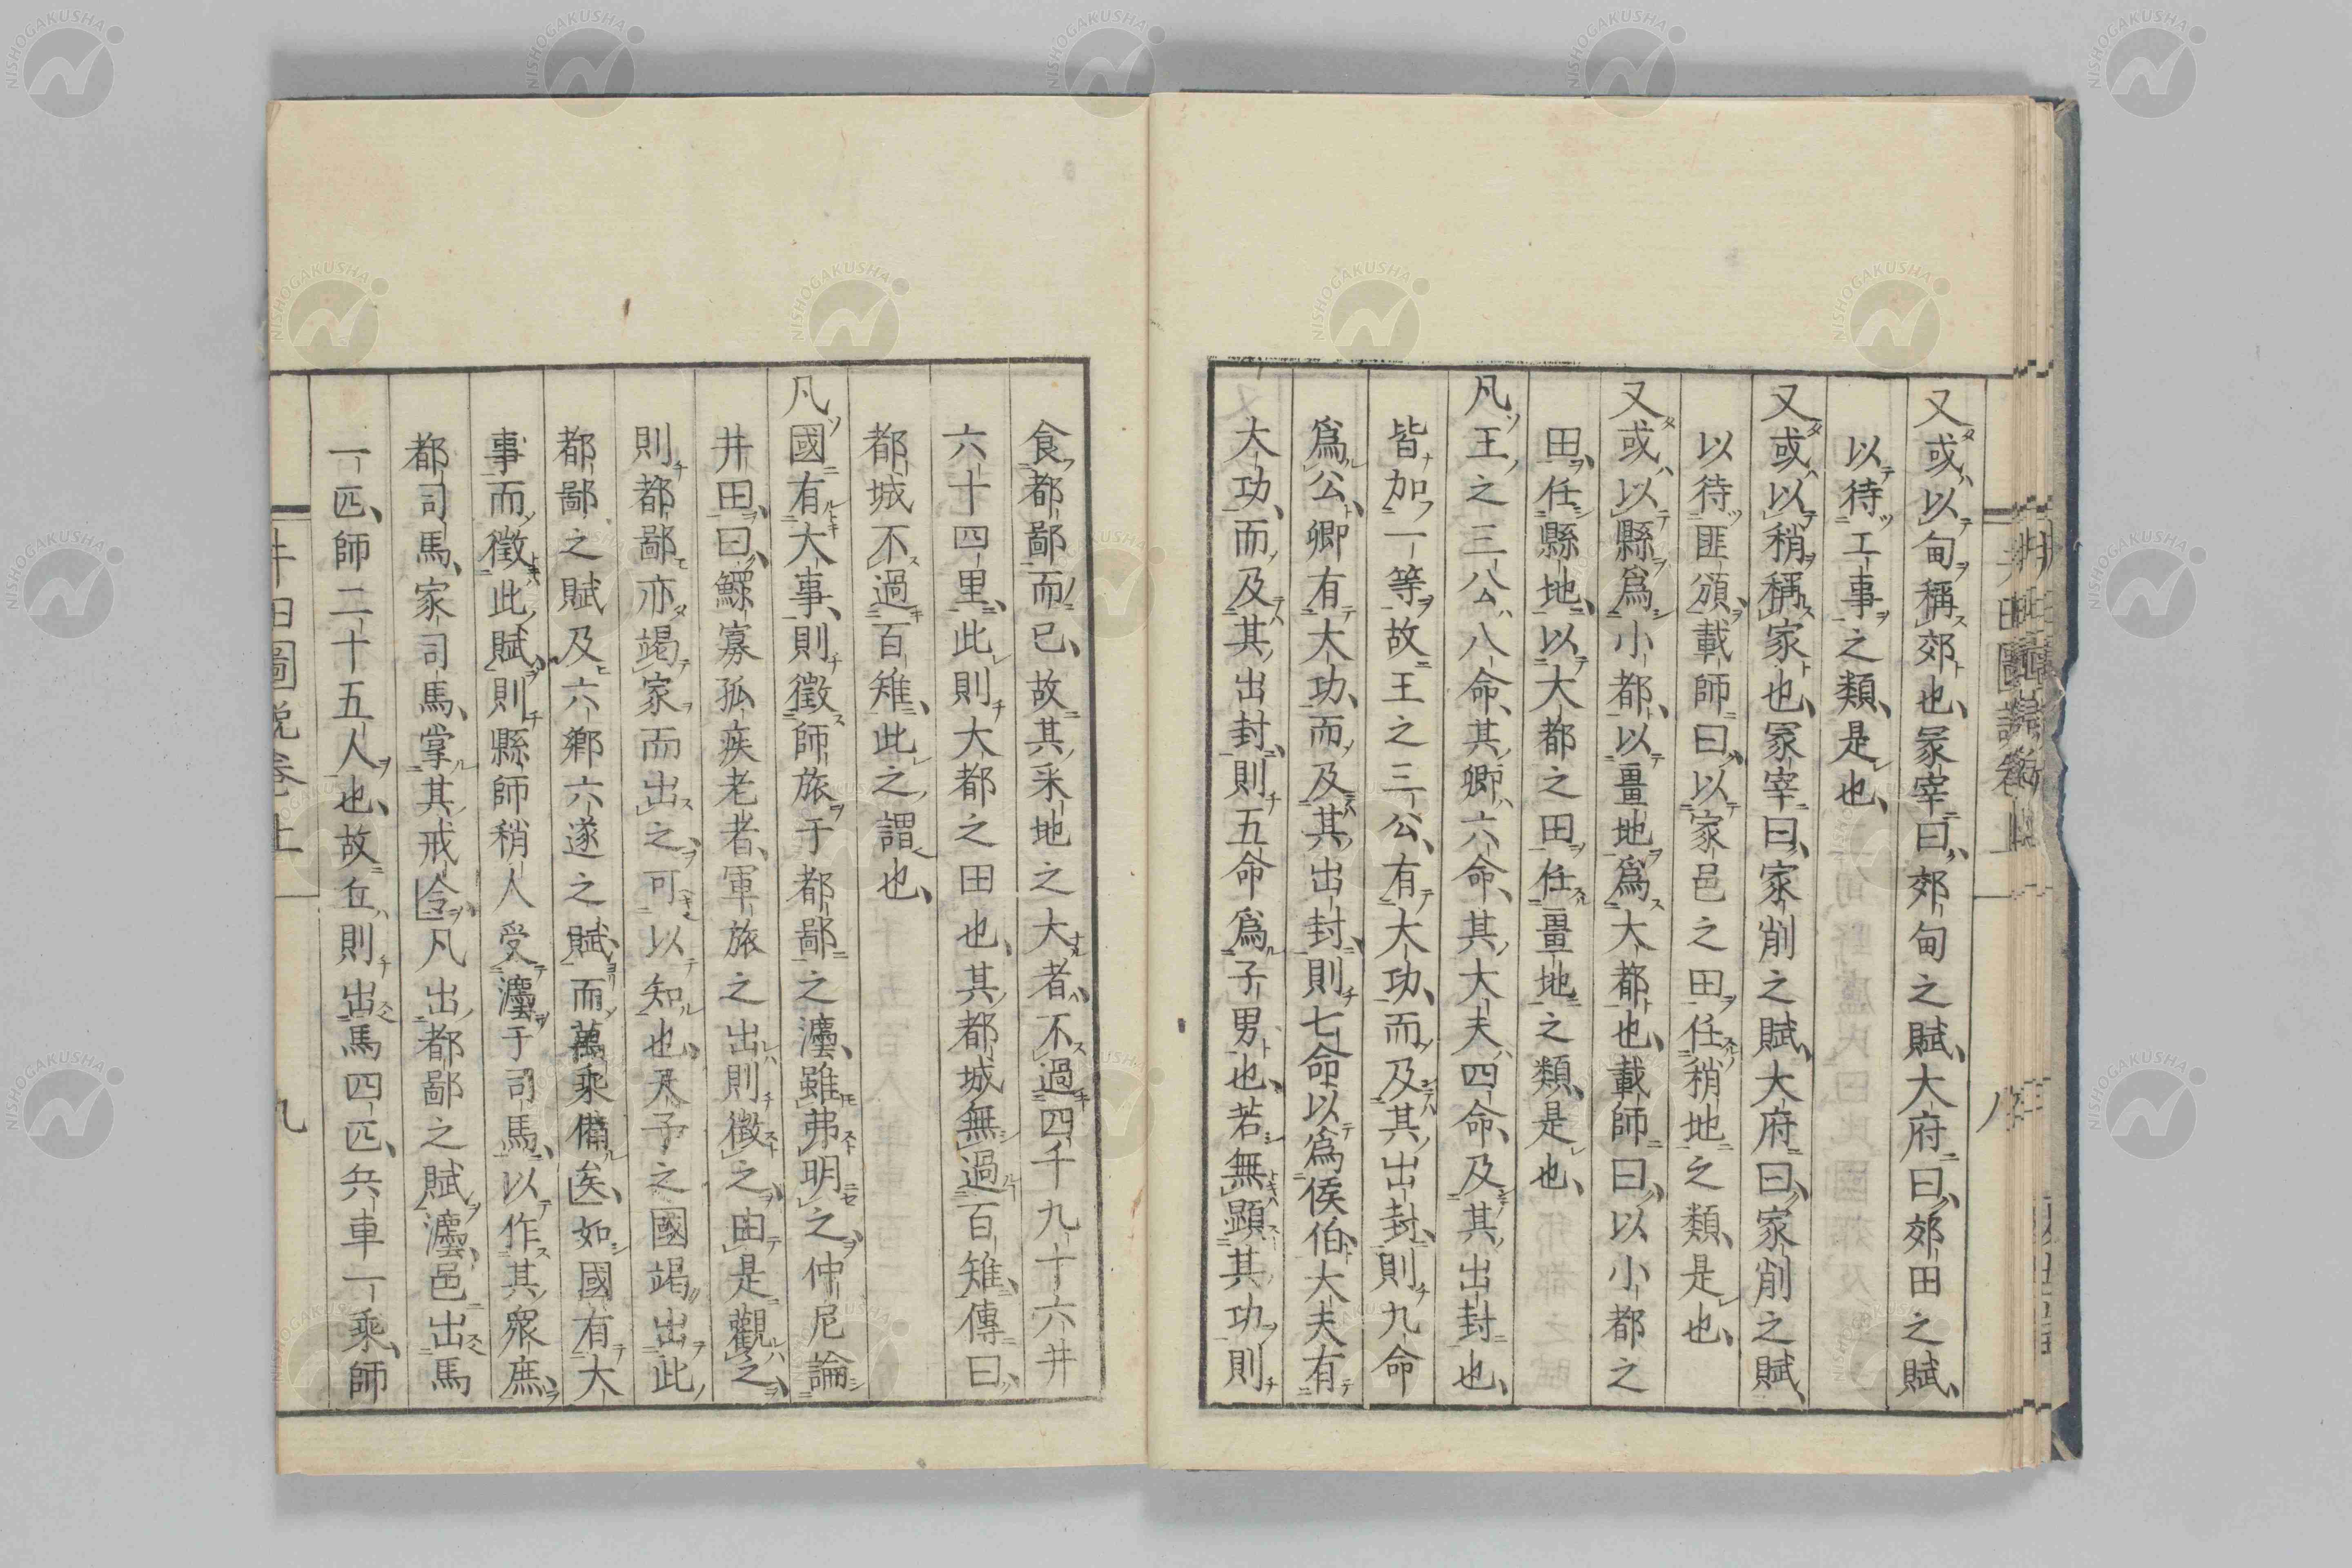 又或以甸稱郊也、冢宰曰、郊甸之賦、大府曰、郊田之賦、
以待工事之類、是也、
又或以稍稱家也、冢宰曰、家削之賦、大府曰、家削之賦、
以待匪頒、載師曰、以家邑之田任稍地之類、是也、
又或以縣爲小都、以畺地爲大都也、載師曰、以小都之
田、任縣地、以大都之田任畺地之類、是也、
凡王之三公八命、其卿六命、其大夫四命、及其出封也、
皆加一等、故王之三公、有大功、而及其出封、則九命
爲公、卿有大功、而及其出封、則七命以爲侯伯、大夫有
大功、而及其出封、則五命爲子男也、若無顯其功則
食都鄙而已、故其采地之大者、不過四千九十六井
六十四里、此則大都之田也、其都城無過百雉、傳曰、
都城不過百雉、此之謂也、
凡國有大事、則徵師旅于都鄙之灋、雖弗明之、仲尼論
井田、曰、鰥寡孤疾老者、軍旅之出則徵之、由是觀之、
則都鄙亦竭家而出之、可以知也、天子之國竭出此
都鄙之賦及六鄉六遂之賦、而萬乘備矣、如國有大
事而徵此賦、則縣師稍人受灋于司馬、以作其衆庶、
都司馬、家司馬、掌其戒令、凡出都鄙之賦灋、邑出馬
一匹、師二十五人也、故丘則出馬四匹、兵車一乘、師
井田圖說卷上
九
NISHOGAKUSHA